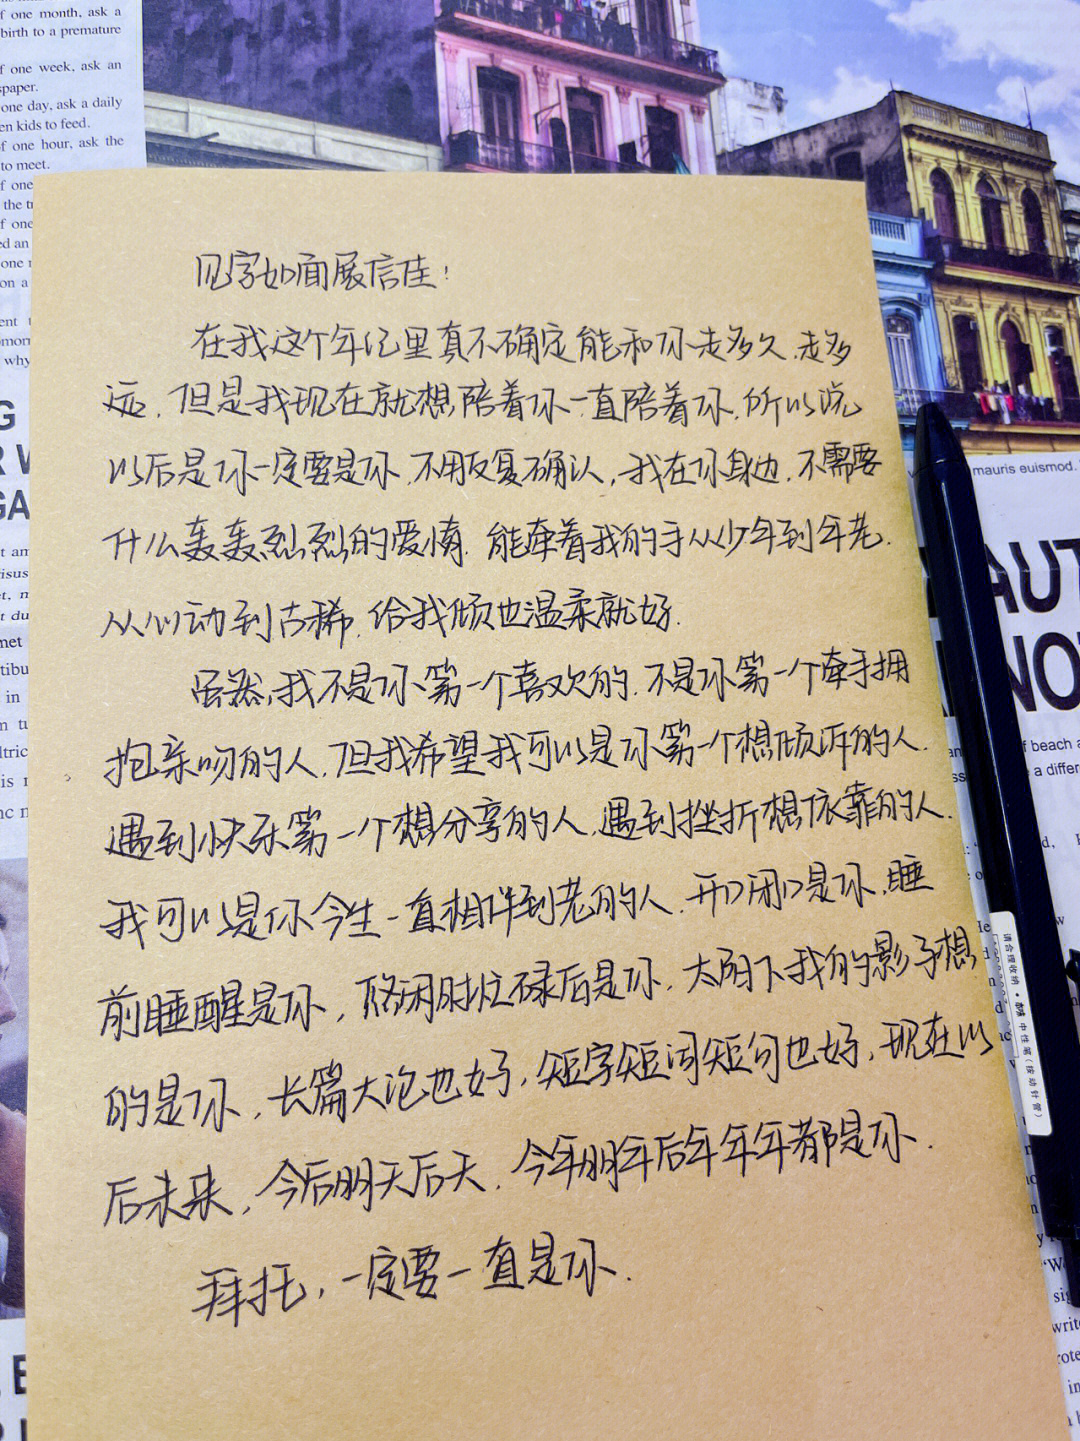 f one month, ask a
birth to a premature
f one week, ask an
spaper.
one day, ask a daily
en kids to feed.
of one hour, ask the
to meet.
f one
the tr
f one
ed an
one
on a
why
见字如面展信佳！
在我这个年纪里真不确定能和你走多久.走多
远.但是我现在就想陪着你一直陪着你.所以说
以后是你一定要是你.不用反复确认,我在你身边.不需要
什么轰轰烈烈的爱情.能牵着我的手从少年到年老.
从心动到古稀.给我倾色温柔就好.
虽然,我不是你第一个喜欢的.不是你第一个牵手拥
抱亲吻的人.但我希望我可以是你第一个想倾诉的人.
遇到快乐第一个想分享的人.遇到挫折想依靠的人.
我可以是你今生一直相伴到老的人.开口闭口是你.睡
前睡醒是你,悠闲时忙碌后是你.太阳下我的影子想
的是你.长篇大论也好,短字短词短句也好,现在以
后未来,今后明天后天.今年明年后年年年都是你.
拜托,一定要一直是你.
mauris euismod.
AUT
NO
f beach a
a differe
请合理收纳
中性笔(按动针管)